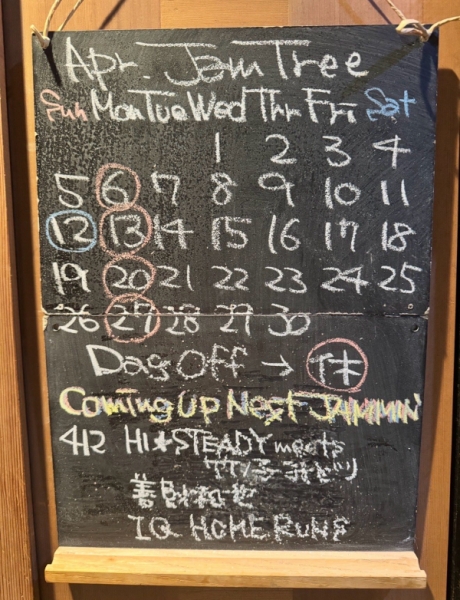 Apr. JamTree
Sun Mon Tue Wed Thr Fri Sat
1 2 3 4
5 6 7 8 9 10 11
12 13 14 15 16 17 18
19 20 21 22 23 24 25
26 27 28 29 30
Day Off → 休
Coming Up Next JAMMIN'
4/12 HI★STEADY meets
善財和也
IQ HOMERUNS